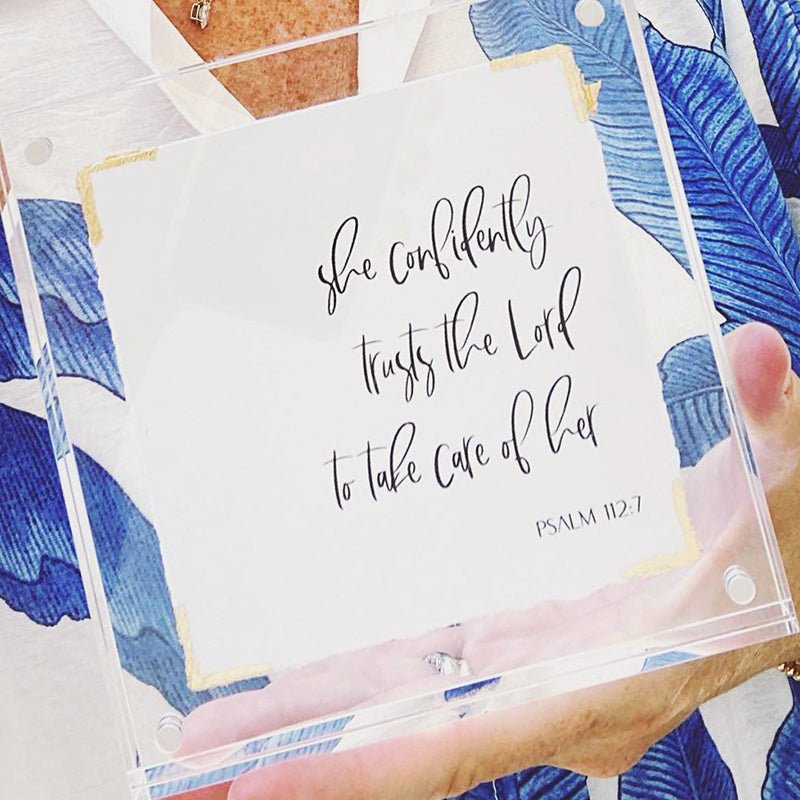 she confidently
trusts the Lord
to take care of her
PSALM 112:7